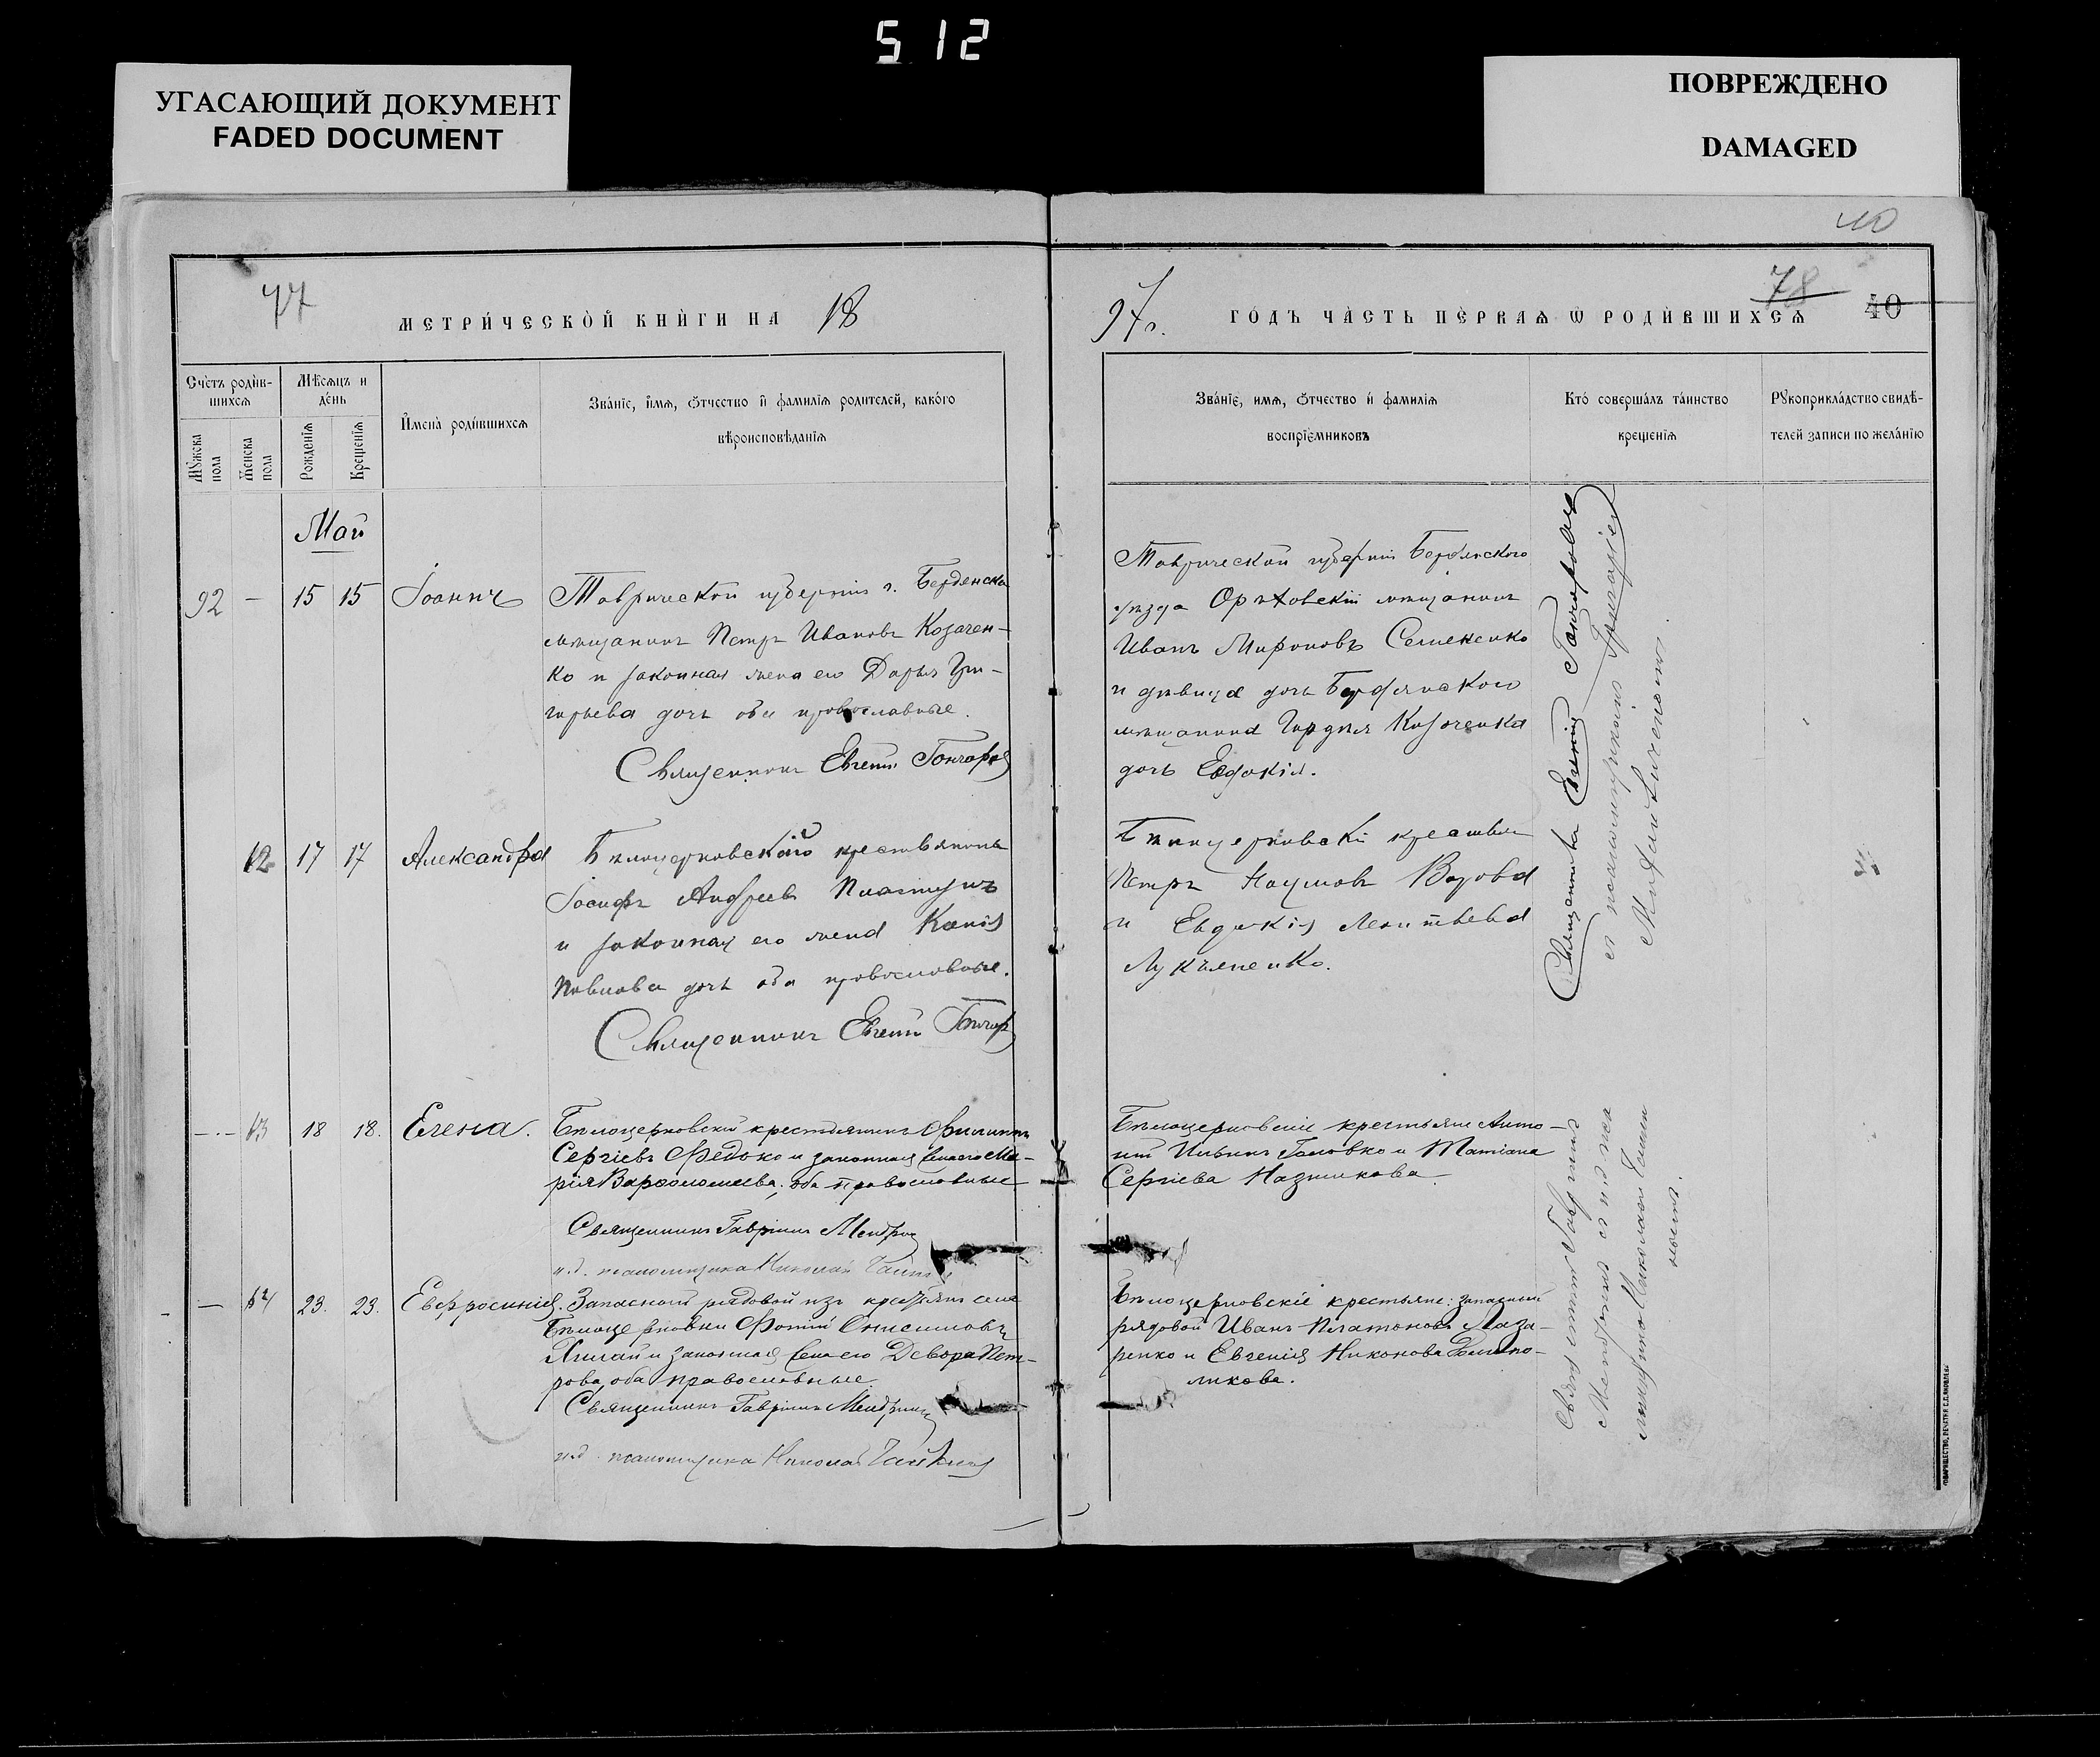 512
УГАСАЮЩИЙ ДОКУМЕНТ
FADED DOCUMENT
ПОВРЕЖДЕНО
DAMAGED
40
77
МЕТРИ́ЧЕСКОЙ КНИ́ГИ НА 18
97 г. ГО́ДЪ ЧА́СТЬ ПЕ́РВАѦ Ѿ РОДИ́ВШИХСѦ
78
40
Сче́тъ роди́в-
шихсѧ
Мѣ́сѧцъ и
де́нь
И҆мена̀ роди́вшихсѧ
Зва́нїе, и҆́мѧ, ѻ҆́тчество и҆ фами́лїѧ роди́телей, како́го
вѣроисповѣ́данїѧ
Мꙋ́жеска
пола
Же́нска
пола
Рожденїѧ
Крещенїѧ
Зва́нїе, имѧ, ѻ҆́тчество и҆ фами́лїѧ
воспрїе́мниковъ
Кто̀ соверша́лъ та́инство
креще́нїѧ
Рꙋкоприкла́дство свидѣ́-
телей записи по жела́нїю
Май
92 — 15 15 Іоаннъ
Таврической губерніи г. Бердянска
мѣщанинъ Петръ Ивановъ Козачен-
ко и законная жена его Дарья Гри-
горьева дочь оба православные.
Священникъ Евгеній Гончаров
Таврической губерніи Бердянского
уѣзда Орѣховскій мѣщанинъ
Иванъ Мироновъ Семексико
и дѣвица дочь Бердянского
мѣщанина Гордея Козаченка
дочь Евдокія.
Священникъ Евгеній Гончаровъ
съ псаломщикомъ Григоріем
12 17 17 Александра
Бѣлоцерковскаго крестьянинъ
Іосифъ Андреевъ Пластунъ
и законная его жена Ксенія
Павлова дочь оба православные.
Священникъ Евгеній Гончар
Бѣлоцерковскій крестьян
Петръ Наумовъ Вдова
и Евдокія Леонтьева
Лукъяненко.
— 13 18 18. Елена.
Бѣлоцерковскій крестьянинъ Филиппъ
Сергіевъ Федько и законная жена его Ма-
рія Варфоломеева, оба православные
Священникъ Гавріилъ Мендрин
и.д. псаломщика Николай Чайкин
Бѣлоцерковскіе крестьяне Анто-
ній Ильинъ Головко и Татіана
Сергіева Назишкова
Священникъ Гавріилъ
Мендринъ съ и.д. пса
ломщика Николаемъ Чайки
нымъ.
— 14 23. 23. Евфросинія.
Запасный рядовой изъ крестьянъ села
Бѣлоцерковки Фотій Онисимовъ
и законная жена его Девора Пет-
рова, оба православные
Священникъ Гавріилъ Мендринъ
и.д. псаломщика Николай Чайкинъ
Бѣлоцерковскіе крестьяне: запасный
рядовой Иванъ Платоновъ Лаза-
ренко и Евгенія Никонова
ликова.